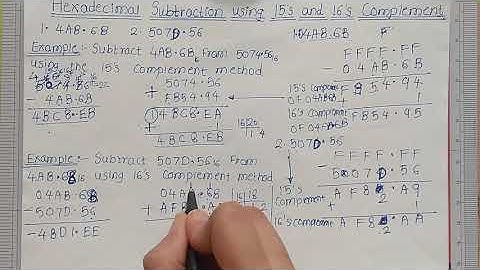 Hexadecimal Subtraction using 15's and 16's Complement
1. 4AB.6B 2. 507D.56
Example:- Subtract 4AB.6B16 From 5074.5616
using the 15's complement method
5074.56
- 4AB.6B
4BC8.EB
5074.56
+ FB54.94
① 4BC8.EA
1
4BC8.EB
1. 04AB.6B
FFFF.FF
- 04AB.6B
15's complement FB54.94
OF 04AB.6B
1
16's complement FB54.95
OF 04AB.6B
Example:- Subtract 507D.5616 From
4AB.6B16 using 16's Complement method
04AB.6B
- 507D.56
- 4BD1.EE
04AB.6B
+ AF
2
FFFF.FF
- 507D.56
15's complement AF82.A9
+ 1
16's complement AF82.AA